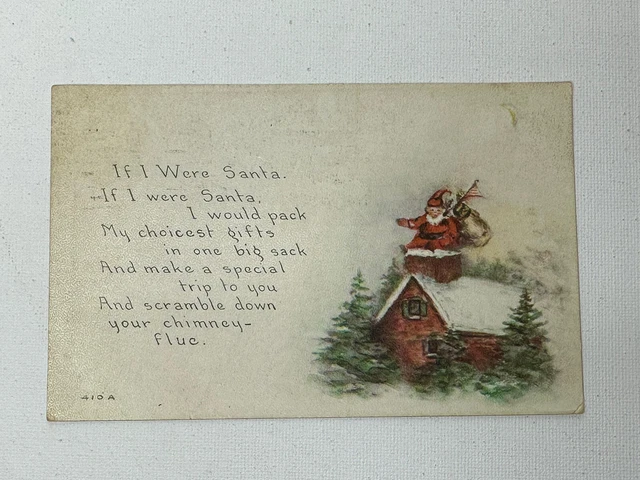 If I Were Santa.
If I were Santa,
I would pack
My choicest gifts
in one big sack
And make a special
trip to you
And scramble down
your chimney-
flue.
410A